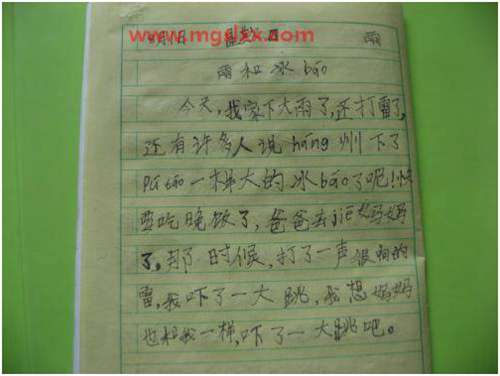 www.mgslxx.com
月 日 星期四 雨
雨和冰báo
今天,我家下大雨了,还打雷了,
还有许多人说háng州下了
Pú táo一样大的冰báo了呢!快
要吃晚饭了,爸爸去jiē妈妈
了,那时候,打了一声很响的
雷,我吓了一大跳,我想妈妈
也和我一样,吓了一大跳吧。